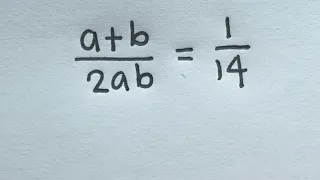 a+b/2ab = 1/14